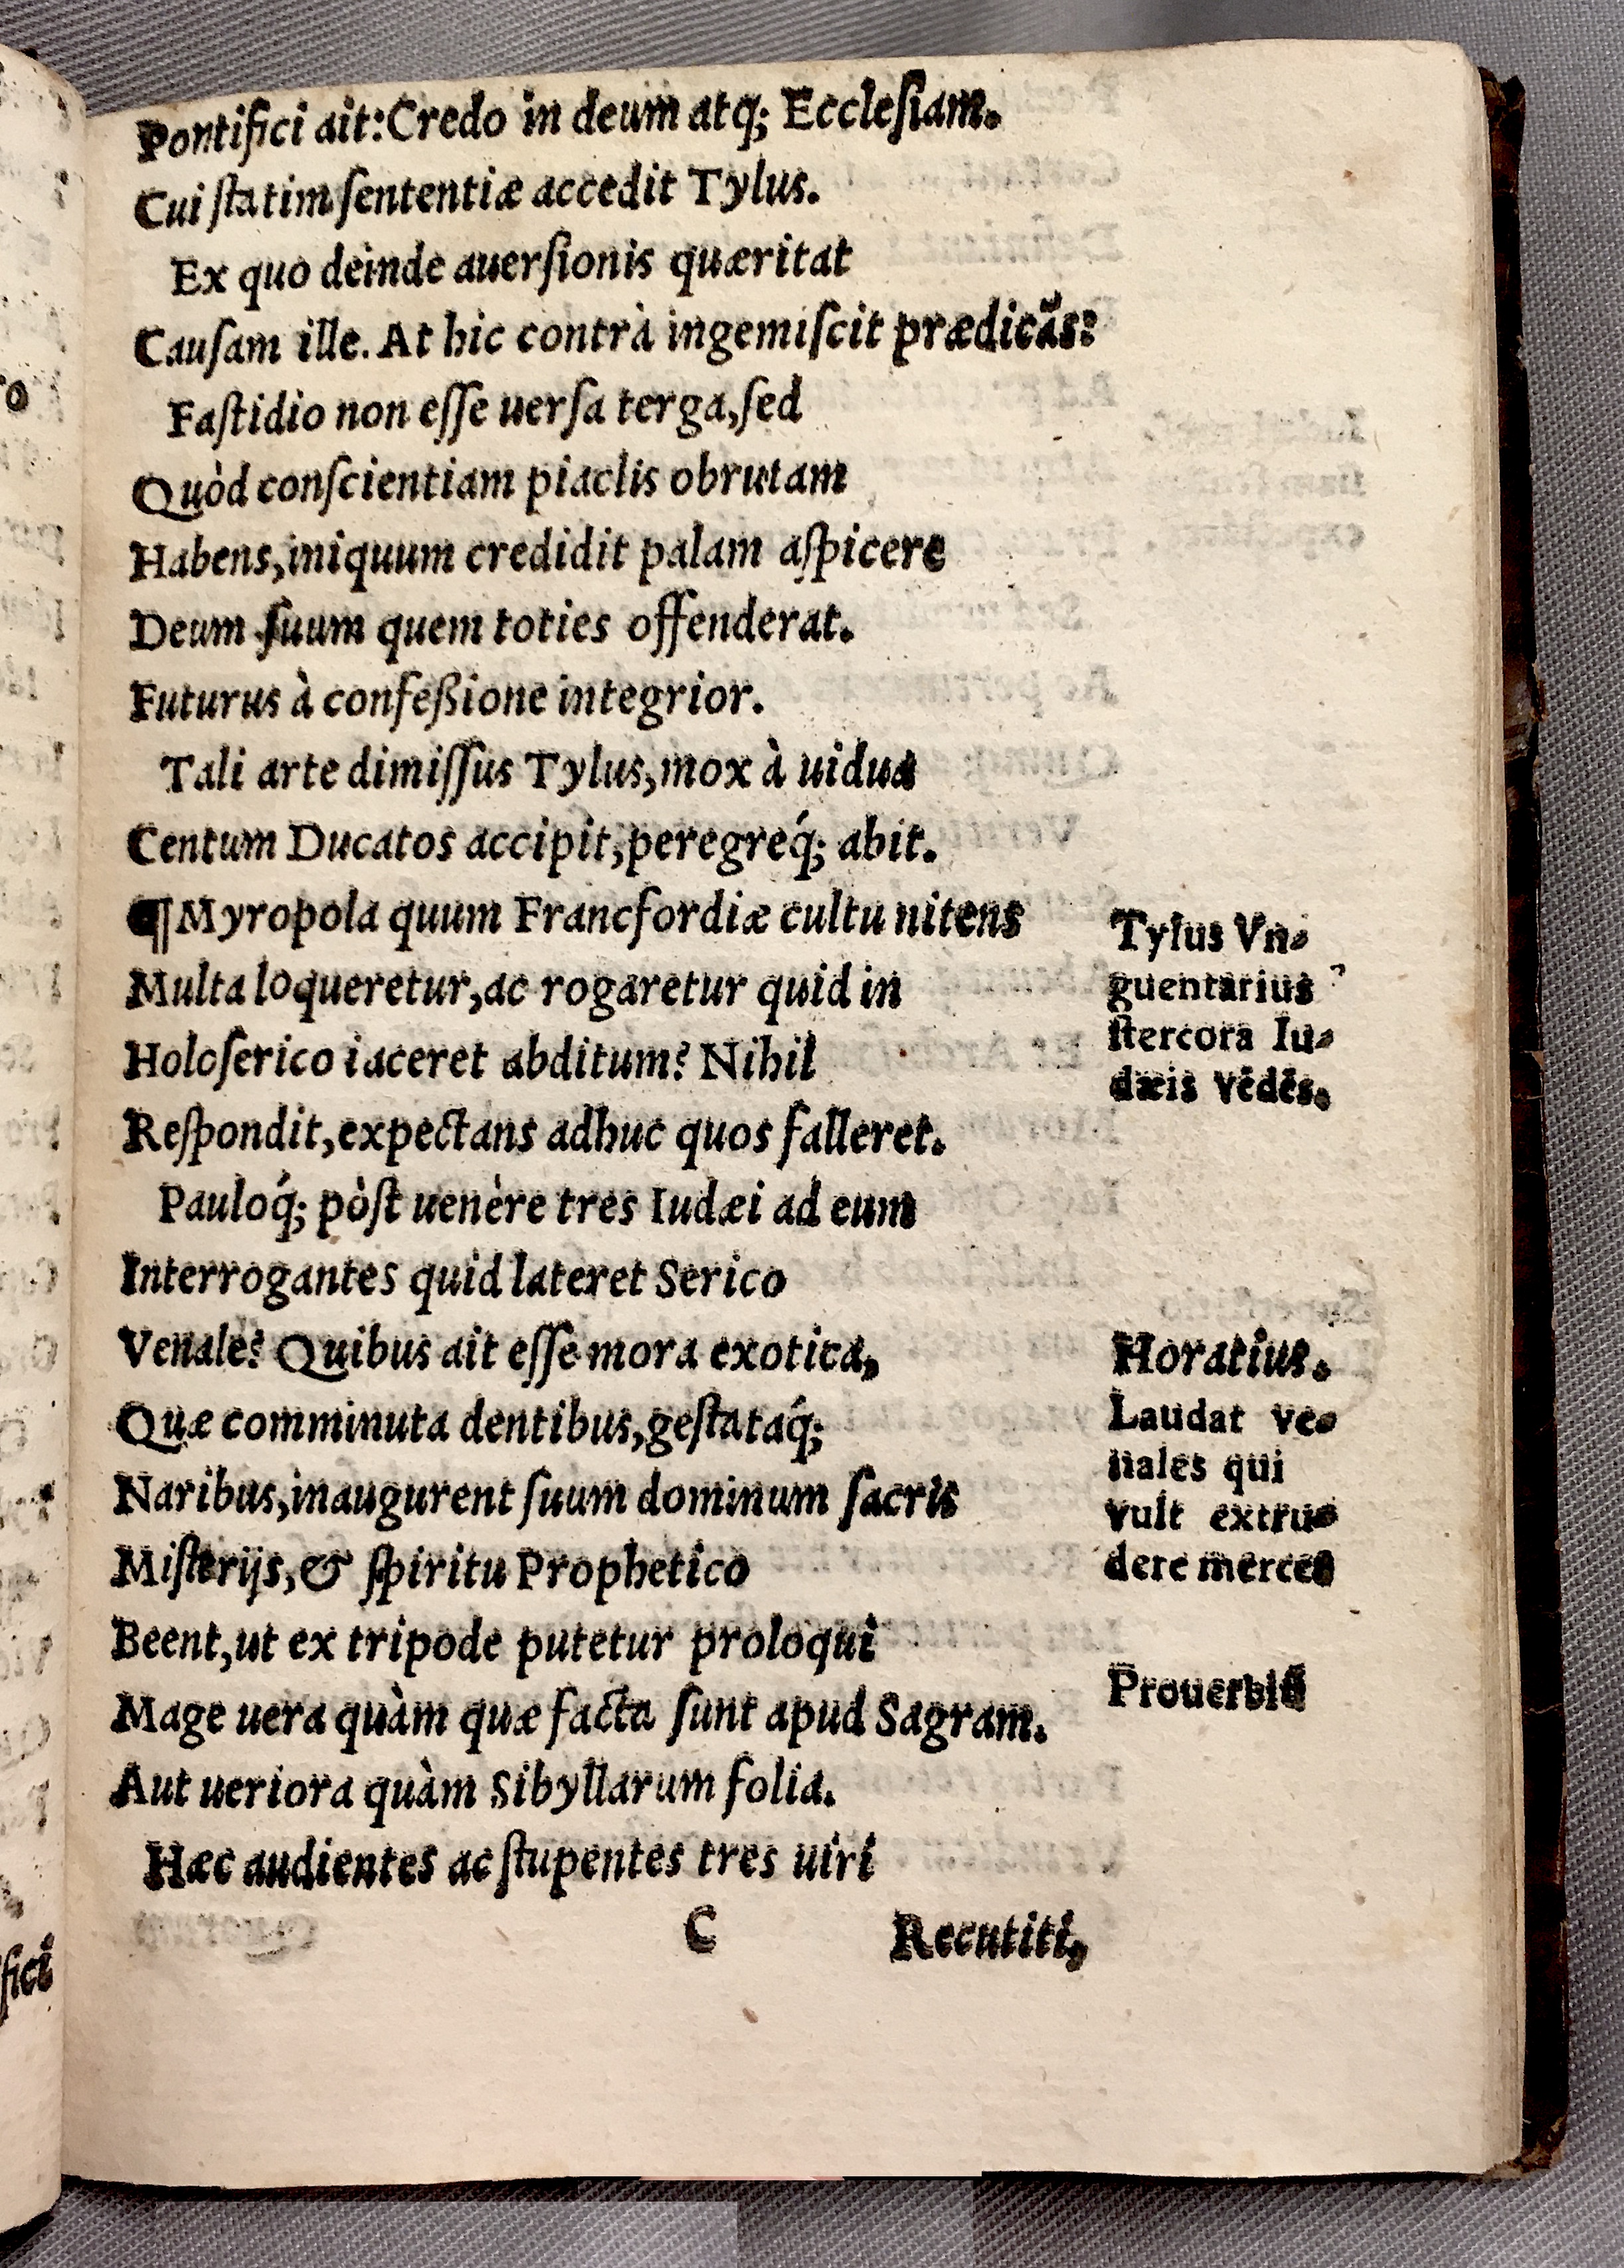 Pontifici ait: Credo in deum atq; Eccleſiam.
Cui ſtatim ſententiæ accedit Tylus.
Ex quo deinde auerſionis quæritat
Cauſam ille. At hic contrà ingemiſcit prædicās:
Faſtidio non eſſe uerſa terga, ſed
Quòd conſcientiam piaclis obrutam
Habens, iniquum credidit palam aſpicere
Deum ſuum quem toties offenderat.
Futurus à confeßione integrior.
Tali arte dimiſſus Tylus, mox à uidua
Centum Ducatos accipit, peregreq́; abit.
¶ Myropola quum Francfordiæ cultu nitens
Multa loqueretur, ac rogaretur quid in
Holoſerico iaceret abditum? Nihil
Reſpondit, expectans adhuc quos falleret.
Pauloq́; pòſt uenère tres Iudæi ad eum
Interrogantes quid lateret Serico
Venale? Quibus ait eſſe mora exotica,
Quæ comminuta dentibus, geſtataq́;
Naribus, inaugurent ſuum dominum ſacris
Miſterijs, & ſpiritu Prophetico
Beent, ut ex tripode putetur proloqui
Mage uera quàm quæ facta ſunt apud Sagram.
Aut ueriora quàm Sibyllarum folia.
Hæc audientes ac ſtupentes tres uiri
C Recutiti,
Tylus Vn-
guentarius
ſtercora Iu-
dæis vēdēs.
Horatius.
Laudat ve-
nales qui
vult extru-
dere merces
Prouerbiū
fici